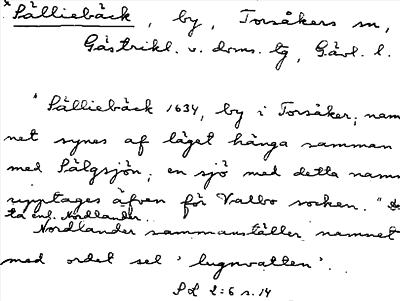 Sälliebäck, by, Torsåkers sn,
Gästrikl. v. doms. tg, Gävl. l.
"Sälliebäck 1634, by i Torsåker; nam-
net synes af läget hänga samman
med Sälgsjön; en sjö med detta namn
upptages äfven för Valbo socken."
ta enl. Nordlander.
Nordlander sammanställer namnet
med ordet sel 'lugnvatten'.
SL 2:6 s. 14